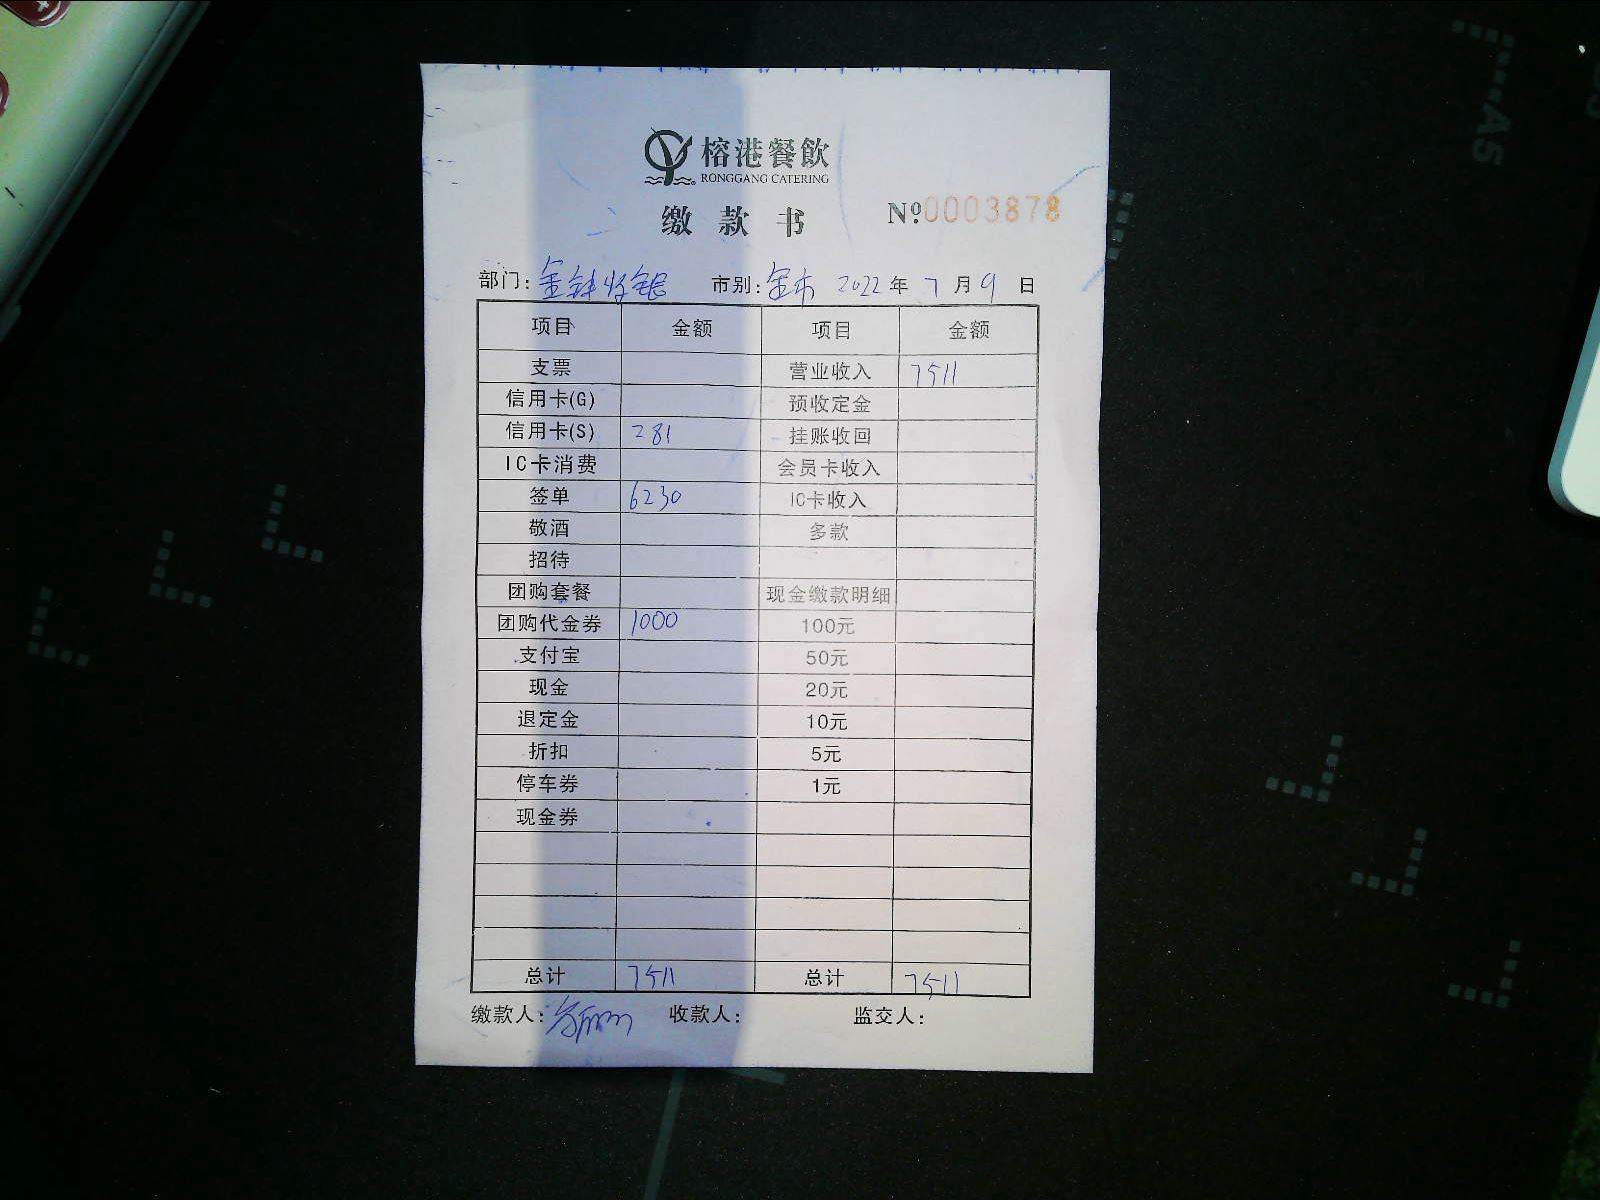 榕港餐飲
RONGGANG CATERING
缴款书 Nº0003878
部门: 收银 市别: 全市 2022年7月9日
项目 金额 项目 金额
支票 营业收入 7511
信用卡(G) 预收定金
信用卡(S) 281 挂账收回
IC卡消费 会员卡收入
签单 6230 IC卡收入
敬酒 多款
招待
团购套餐 现金缴款明细
团购代金券 1000 100元
支付宝 50元
现金 20元
退定金 10元
折扣 5元
停车券 1元
现金券
总计 7511 总计 7511
缴款人: 收款人: 监交人:
A5